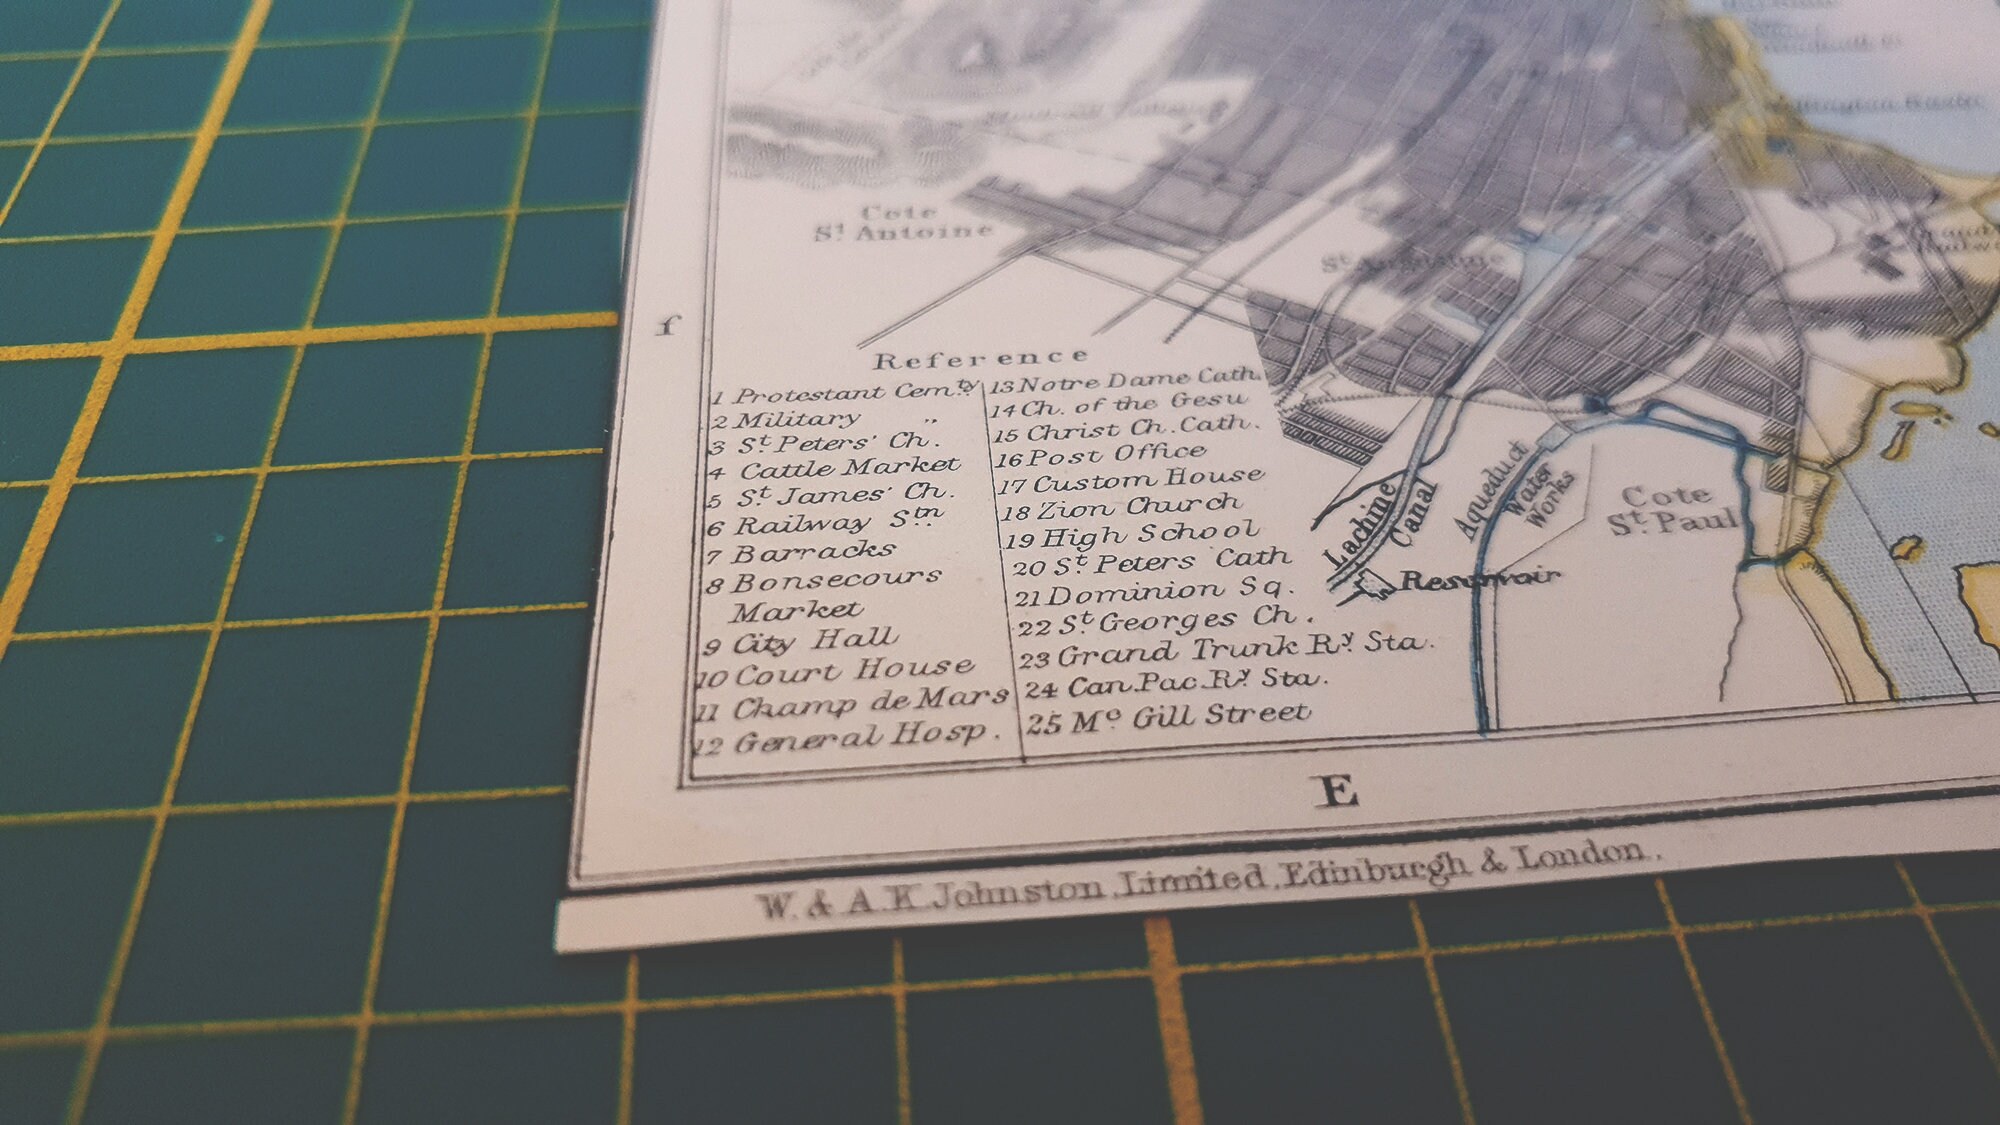 Cote
St. Antoine
St. Augustine
f
Reference
1 Protestant Cem.ty
2 Military „
3 St. Peters' Ch.
4 Cattle Market
5 St. James' Ch.
6 Railway Stn.
7 Barracks
8 Bonsecours
Market
9 City Hall
10 Court House
11 Champ de Mars
12 General Hosp.
13 Notre Dame Cath.
14 Ch. of the Gesu
15 Christ Ch. Cath.
16 Post Office
17 Custom House
18 Zion Church
19 High School
20 St. Peters Cath
21 Dominion Sq.
22 St. Georges Ch.
23 Grand Trunk Ry. Sta.
24 Can. Pac. Ry. Sta.
25 Mc Gill Street
Lachine
Canal
Aqueduct
Water
Works
Reservoir
Cote
St. Paul
E
W. & A. K. Johnston, Limited, Edinburgh & London.